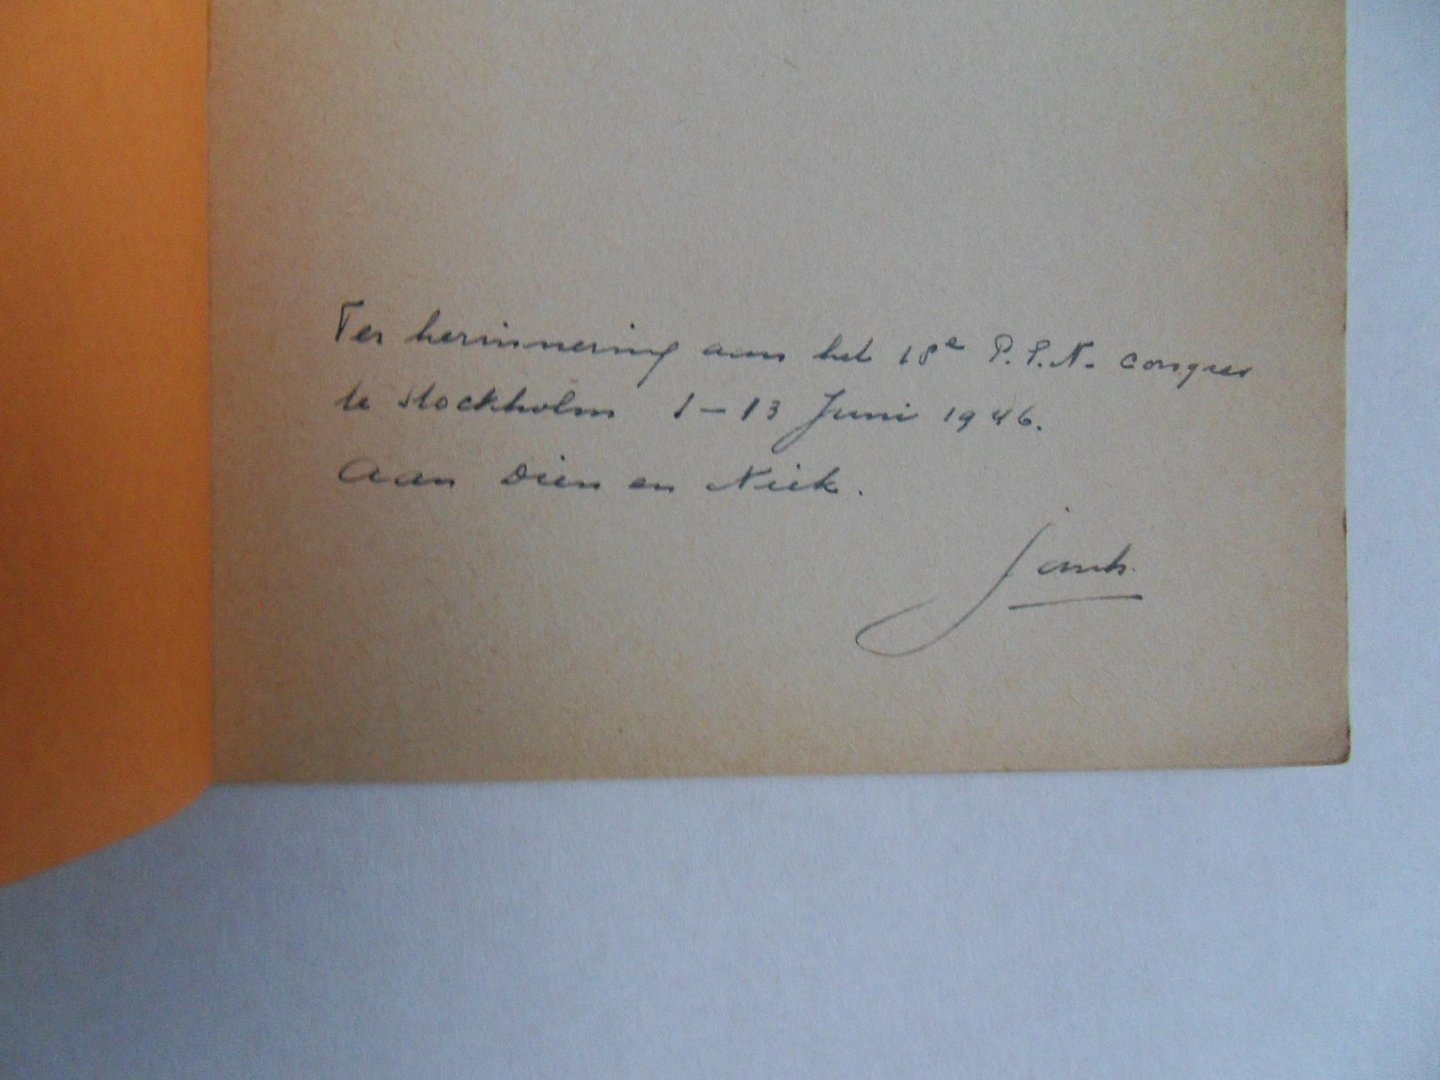 Ter herinnering aan het 18e P.E.N. congres
te Stockholm 1-13 Juni 1946.
Aan Dien en Niek.